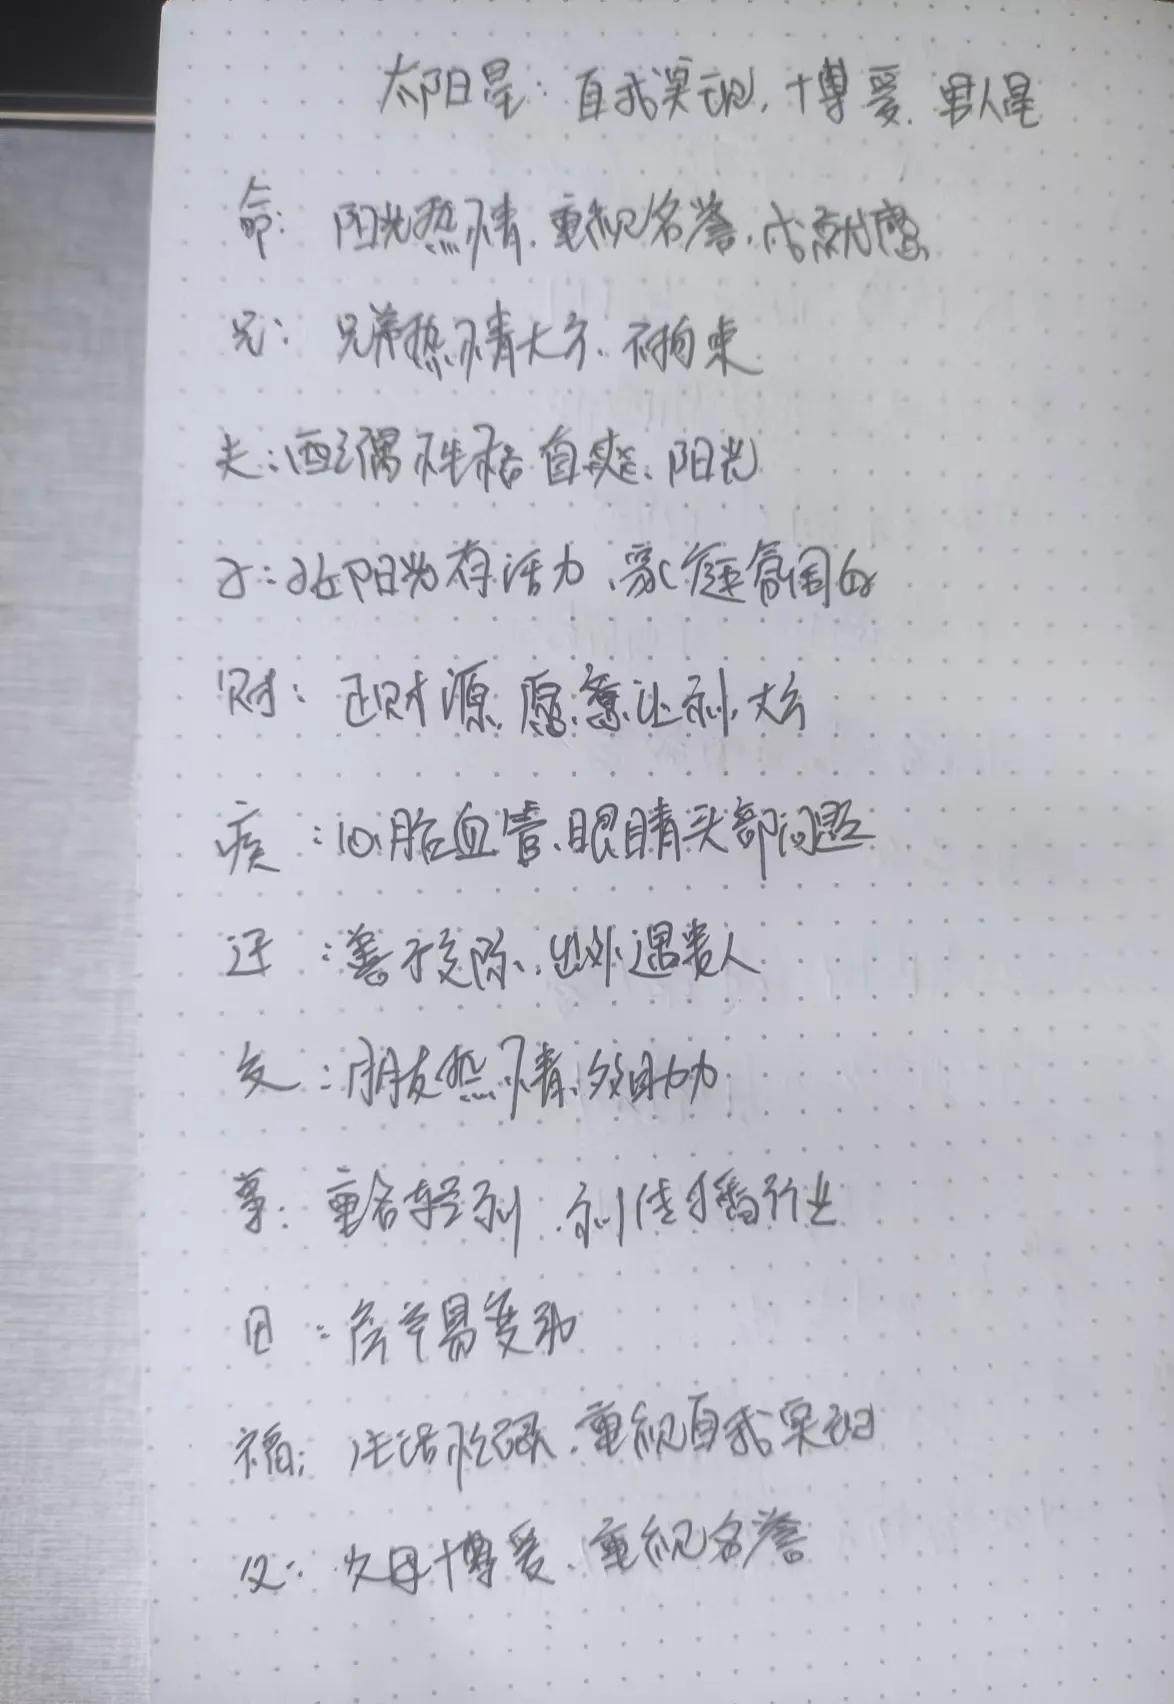 太阳星：自我实现，博爱，男人星
命：阳光热情，重视名誉，成就感
兄：兄弟热情大方、不拘束
夫：配偶性格直爽、阳光
子：孩阳光有活力、家庭氛围好
财：正财源，愿意让利，大方
疾：心脑血管、眼睛头部问题
迁：善于交际，出外遇贵人
友：朋友热情、多助力
事：重名轻利，利传播行业
田：房产易变动
福：生活忙碌，重视自我实现
父：父母博爱、重视名誉